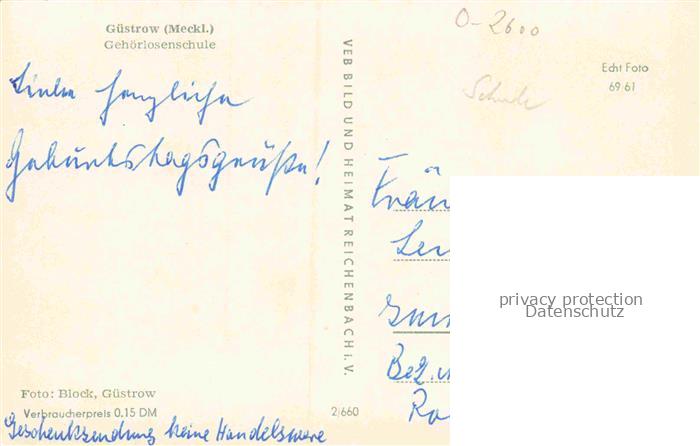 Güstrow (Meckl.)
Gehörlosenschule
herzliche
Geburtstagsgrüße!
Foto: Block, Güstrow
Verbraucherpreis 0,15 DM
Geschenksendung keine Handelsware
VEB BILD UND HEIMAT REICHENBACH i. V.
2/660
O-2600
Echt Foto
69/61
Schule
Fräu
Bez.
Ro
privacy protection
Datenschutz